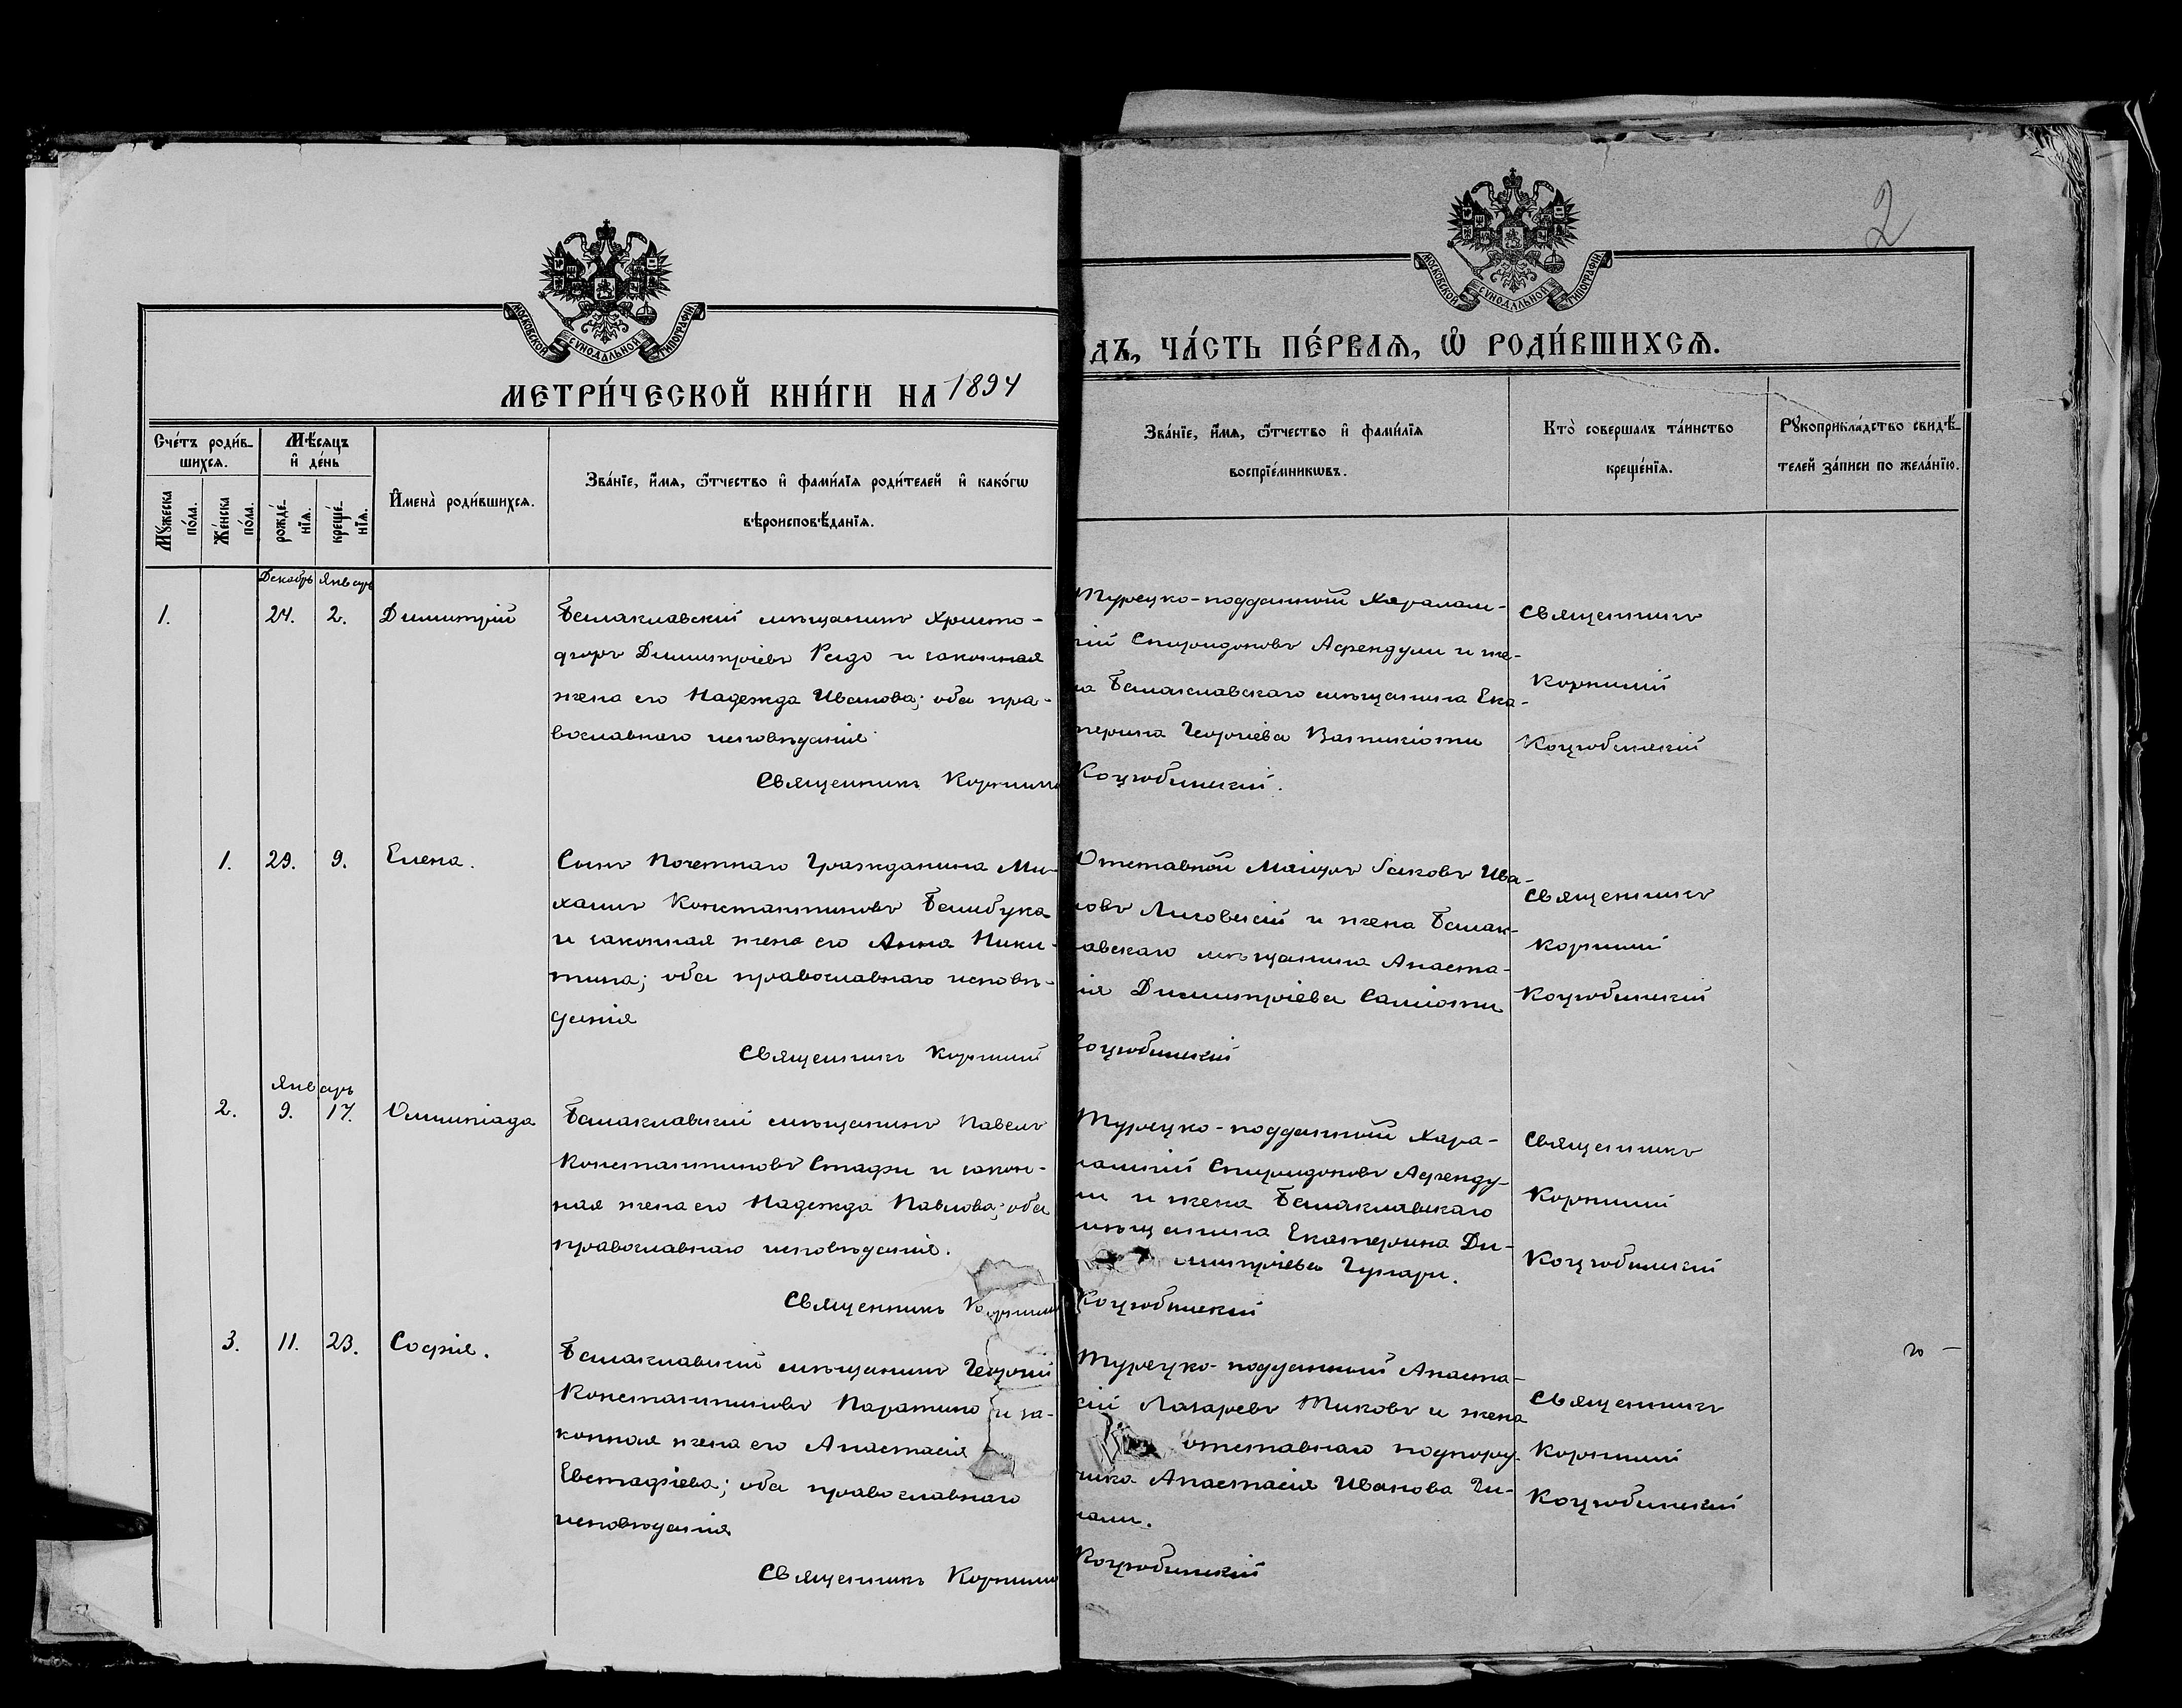 2
МОСКОВСКОЙ СѴНОДАЛЬНОЙ ТИПОГРАФІИ
МОСКОВСКОЙ СѴНОДАЛЬНОЙ ТИПОГРАФІИ
МЕТРИ́ЧЕСКОЙ КНИ́ГИ НА 1894
ДЪ, ЧА́СТЬ ПЕ́РВАѦ, Ѽ РОДИ́ВШИХСѦ.
Сче́тъ роди́в-
шихсѧ.
Мꙋ́жеска
по́ла.
Же́нска
по́ла.
Мѣ́сяцъ
и҆ де́нь
рожде́-
нїѧ.
креще́-
нїѧ.
И҆мена̀ роди́вшихсѧ.
Зва́нїе, и҆́мѧ, ѻ҆́тчество и҆ фами́лїѧ роди́телей и҆ како́гѡ
вѣроисповѣ́данїѧ.
Зва́нїе, и҆́мѧ, ѻ҆́тчество и҆ фами́лїѧ
воспрїе́мникѡвъ.
Кто̀ совершалъ та́инство
креще́нїѧ.
Рꙋкоприкла́дство свидѣ́-
телей за́писи по жела́нїю.
Декабрь Январь
1. 24. 2. Димитрій
Балаклавский мѣщанинъ Христо-
форъ Димитріевъ Ридо и законная
жена его Надежда Иванова; оба пра-
вославнаго исповѣданія
Священникъ Корнилій
Турецко-подданный Харалам-
пій Спиридоновъ Афендули и же-
на Балаклавскаго мѣщанина Ека-
терина Георгіева Ватикіоти
Коцюбинскій.
Священникъ
Корнилій
Коцюбинскій
1. 29. 9. Елена.
Сынъ Почетнаго Гражданина Ми-
хаилъ Константиновъ Бамбука
и законная жена его Анна Ники-
тина; оба православнаго исповѣ-
данія
Священникъ Корнилій
Отставной Маіоръ Яковъ Ива-
новъ Лисовскій и жена Балак-
лавскаго мѣщанина Анаста-
сія Димитріева Саліоти
Коцюбинскій
Священникъ
Корнилій
Коцюбинскій
Январь
2. 9. 17. Олимпіада
Балаклавскій мѣщанинъ Павелъ
Константиновъ Стафи и закон-
ная жена его Надежда Павлова; оба
православнаго исповѣданія.
Священникъ Корнилій
Турецко-подданный Хара-
лампій Спиридоновъ Афенду-
ли и жена Балаклавскаго
мѣщанина Екатерина Ди-
митріева Гунари.
Коцюбинскій
Священникъ
Корнилій
Коцюбинскій
3. 11. 23. Софія.
Балаклавскій мѣщанинъ Георгій
Константиновъ Паратино и за-
конная жена его Анастасія
Евстафіева; оба православнаго
исповѣданія
Священникъ Корнилій
Турецко-подданный Анаста-
сій Лазаревъ Тиковъ и жена
отставнаго подпору-
чика Анастасія Иванова Ги-
нали.
Коцюбинскій
Священникъ
Корнилій
Коцюбинскій